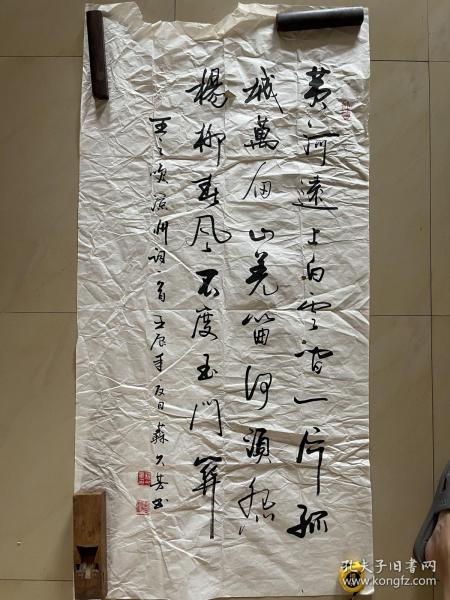 黄河遠上白雲間一片孤
城萬仞山羌笛何須怨
楊柳春风不度玉門關
王之涣凉州词一首 壬辰年夏日 蘇久芳书
孔夫子旧书网
www.kongfz.com